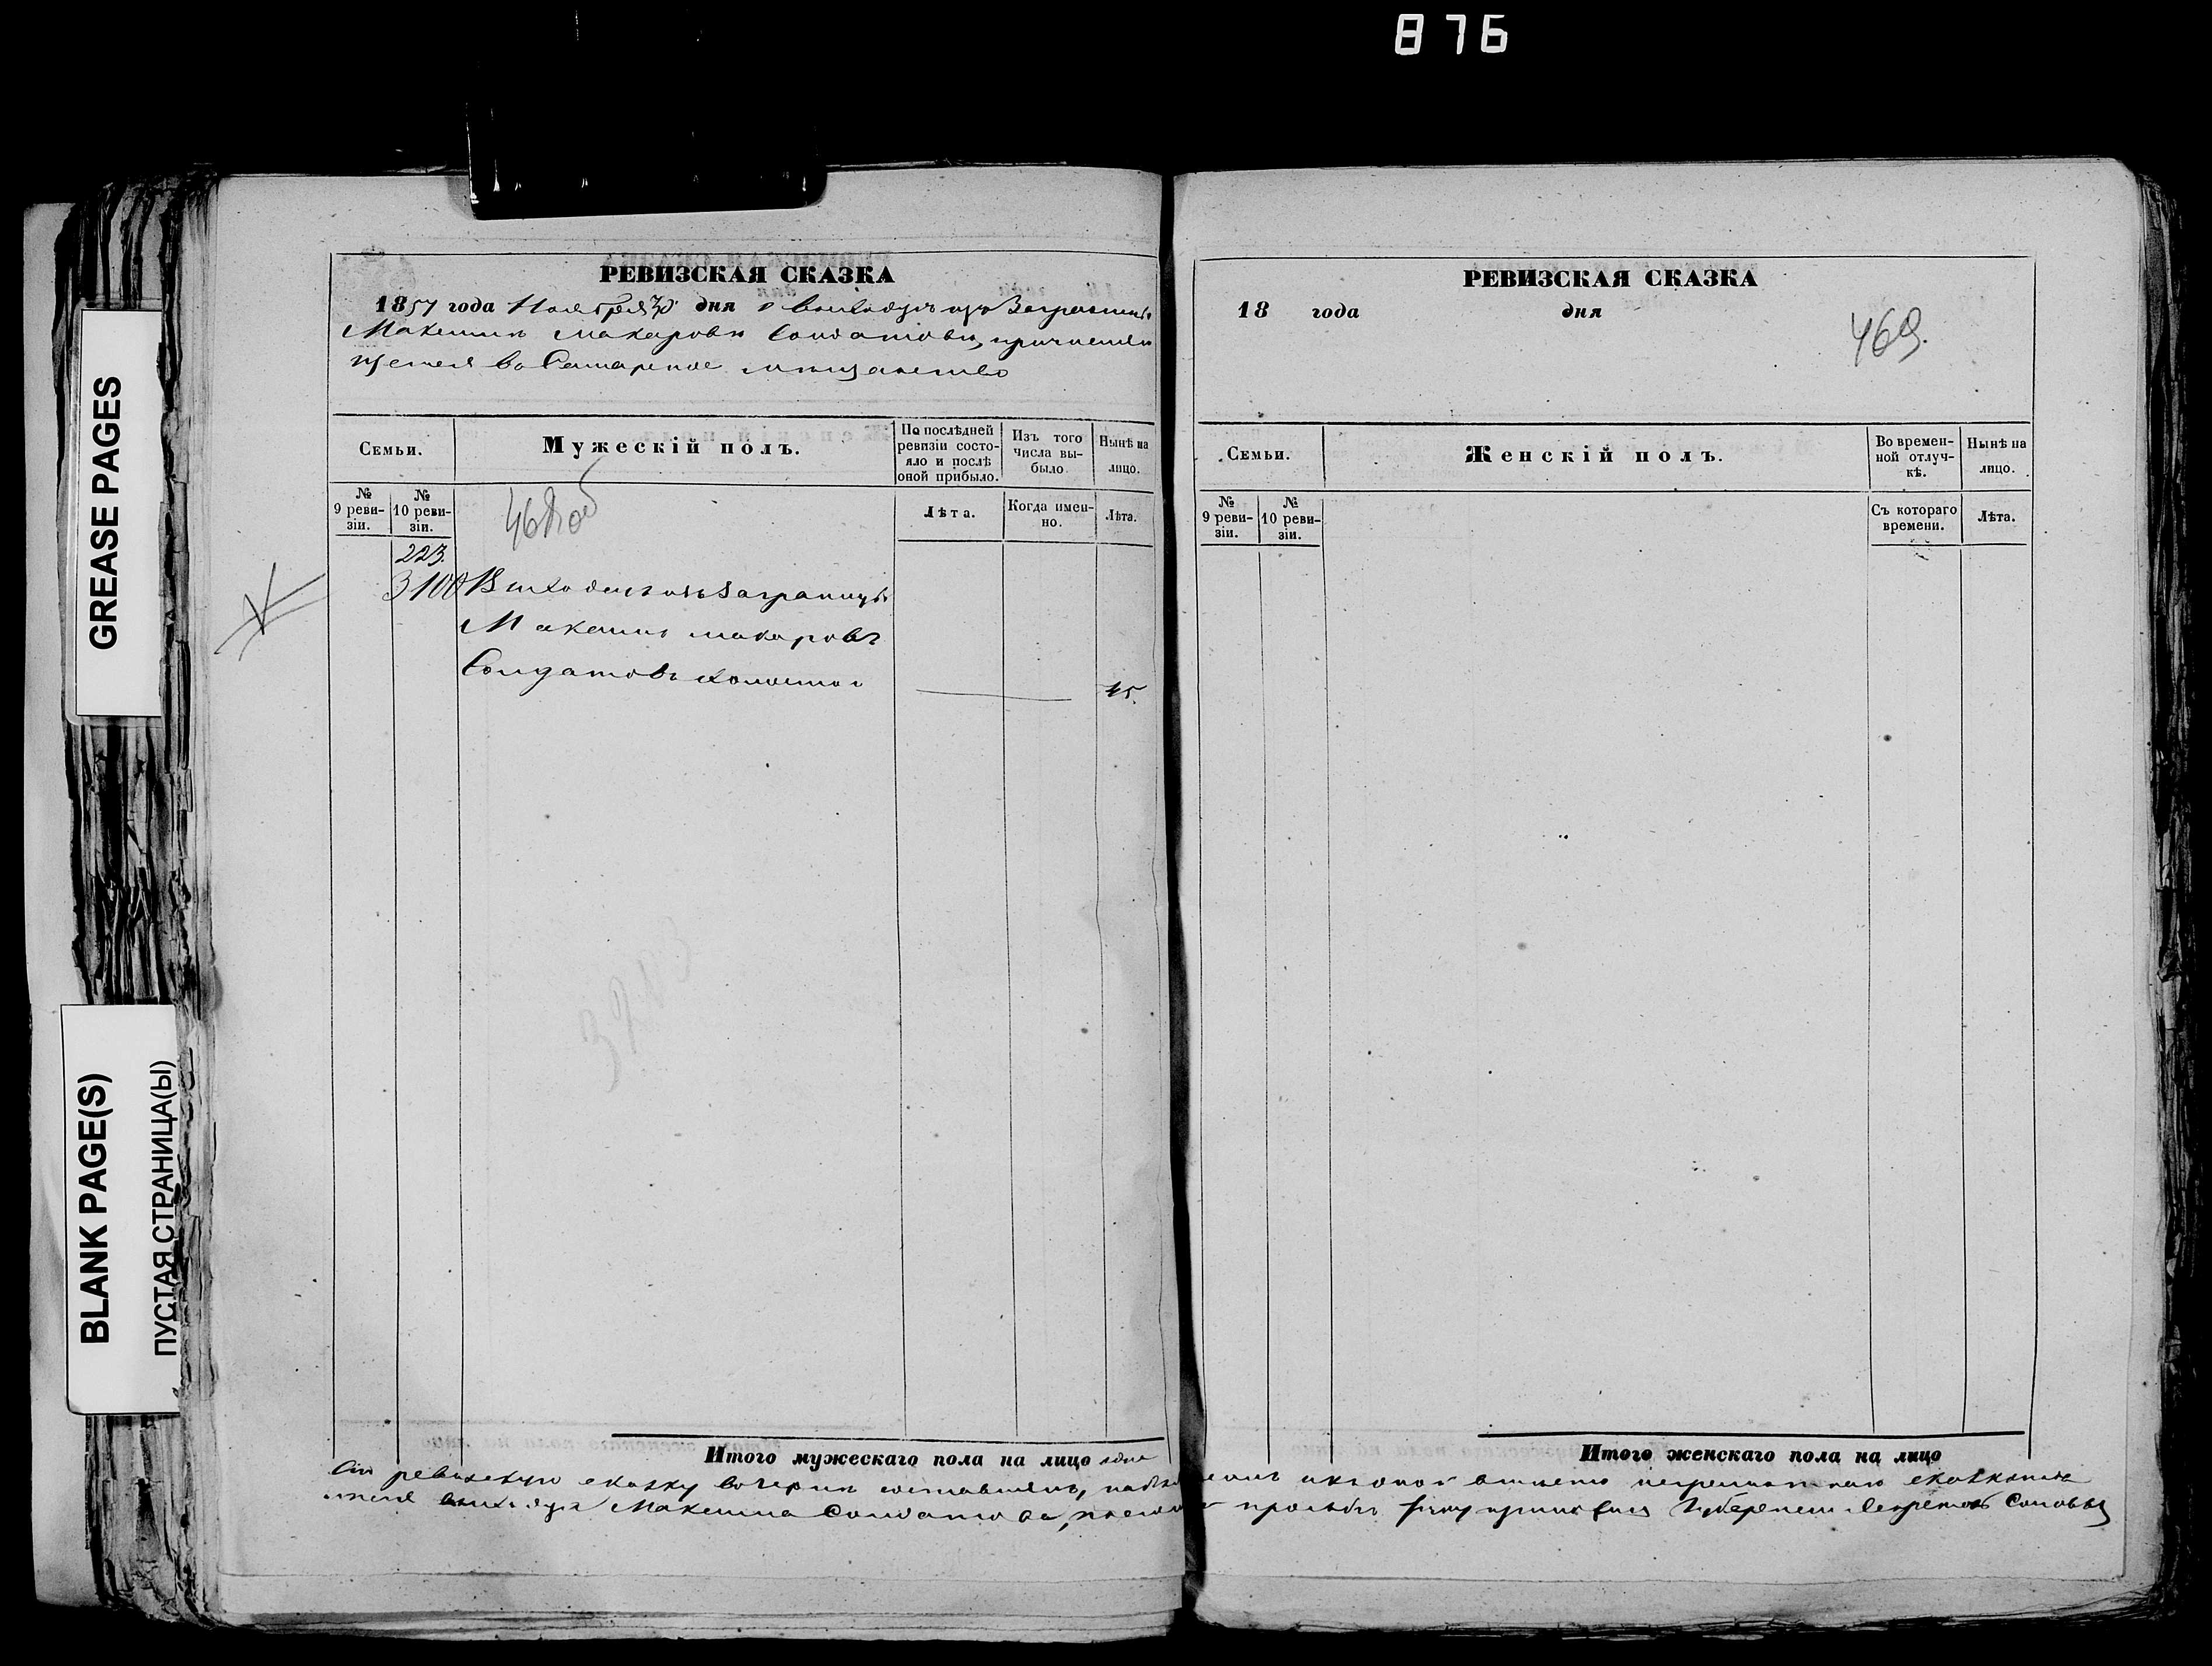 876
GREASE PAGES
BLANK PAGE(S)
ПУСТАЯ СТРАНИЦА(Ы)
РЕВИЗСКАЯ СКАЗКА
1857 года Ноября дня о выходцѣ изъ Заграницы
Максимѣ Макаровѣ Солдатовѣ, причисляю
щемся въ Самарское мѣщанство
Семьи.
Мужескій полъ.
По послѣдней ревизіи состояло и послѣ оной прибыло.
Изъ того числа выбыло
Нынѣ на лицо.
№ 9 ревизіи.
№ 10 ревизіи.
Лѣта.
Когда именно.
Лѣта.
223.
3100 Выходецъ изъ Заграницы
Максимъ Макаровъ
Солдатовъ холостой
45.
Итого мужескаго пола на лицо одна
РЕВИЗСКАЯ СКАЗКА
18 года дня
469.
Семьи.
Женскій полъ.
Во временной отлучкѣ.
Нынѣ на лицо.
№ 9 ревизіи.
№ 10 ревизіи.
Съ котораго времени.
Лѣта.
Итого женскаго пола на лицо
Сію ревизскую сказку
выходца Максима Солдатова, просьбѣ Губернскій Секретарь Соловьев